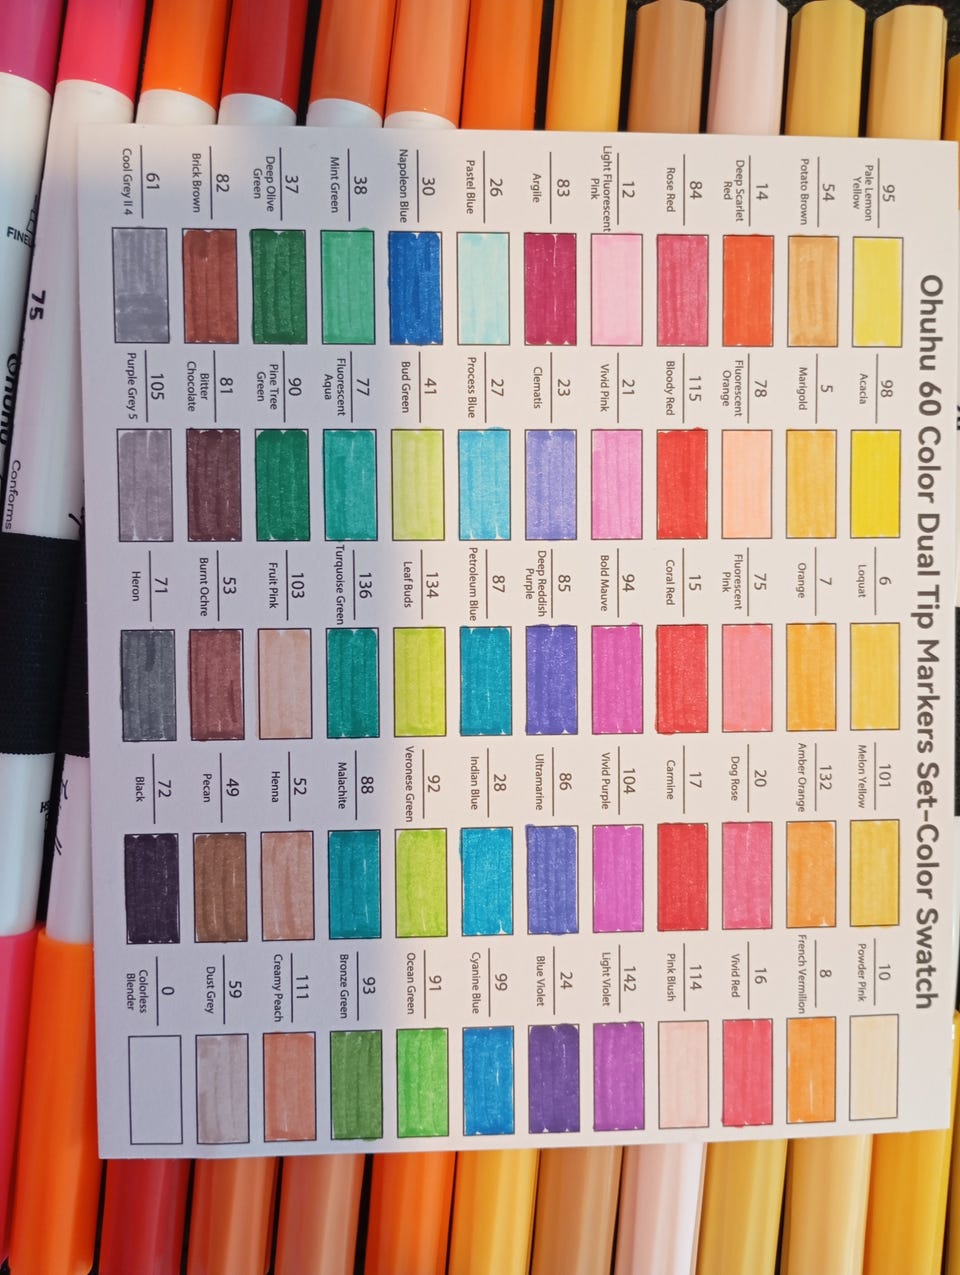 Ohuhu 60 Color Dual Tip Markers Set-Color Swatch
95
Pale Lemon
Yellow
98
Acacia
6
Loquat
101
Melon Yellow
10
Powder Pink
54
Potato Brown
5
Marigold
7
Orange
132
Amber Orange
8
French Vermilion
14
Deep Scarlet
Red
78
Fluorescent
Orange
75
Fluorescent
Pink
20
Dog Rose
16
Vivid Red
84
Rose Red
115
Bloody Red
15
Coral Red
17
Carmine
114
Pink Blush
12
Light Fluorescent
Pink
21
Vivid Pink
94
Bold Mauve
104
Vivid Purple
142
Light Violet
83
Argile
23
Clematis
85
Deep Reddish
Purple
86
Ultramarine
24
Blue Violet
26
Pastel Blue
27
Process Blue
87
Petroleum Blue
28
Indian Blue
99
Cyanine Blue
30
Napoleon Blue
41
Bud Green
134
Leaf Buds
92
Veronese Green
91
Ocean Green
38
Mint Green
77
Fluorescent
Aqua
136
Turquoise Green
88
Malachite
93
Bronze Green
37
Deep Olive
Green
90
Pine Tree
Green
103
Fruit Pink
52
Henna
111
Creamy Peach
82
Brick Brown
81
Bitter
Chocolate
53
Burnt Ochre
49
Pecan
59
Dust Grey
61
Cool Grey II 4
105
Purple Grey 5
71
Heron
72
Black
0
Colorless
Blender
75
FINE
Conforms